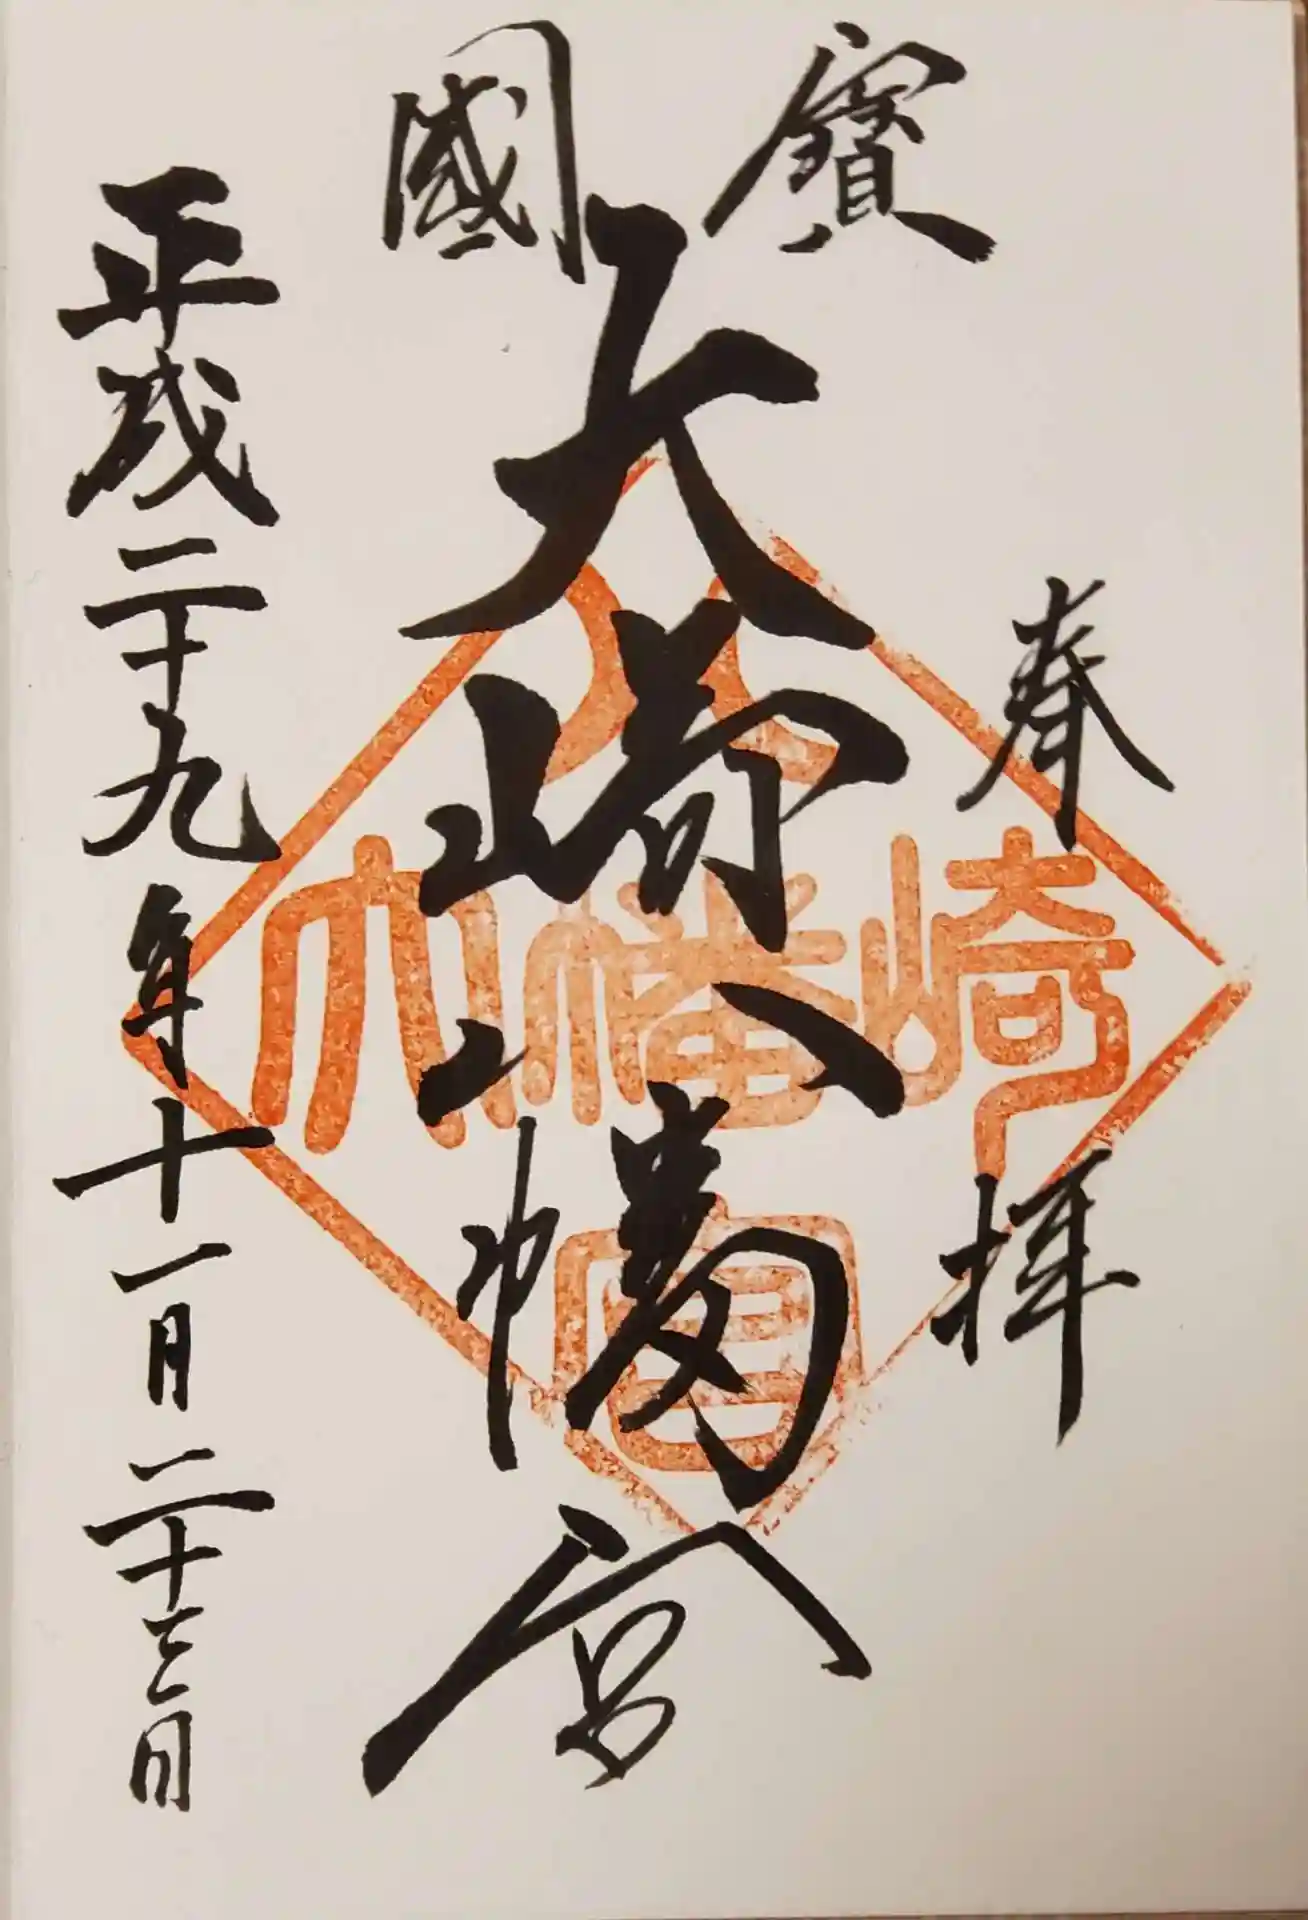 國寶
奉拝
大崎八幡宮
平成二十九年十一月二十三日
八
大幡崎
宮